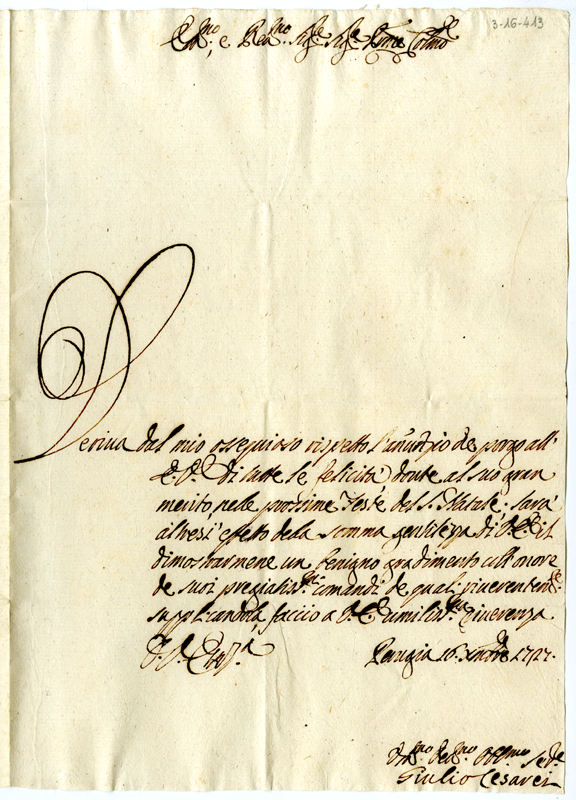 3-16-413
Em.mo, e Rev.mo Sig.re Sig.re P̄rone Colmo
Deriva dal mio ossequioso rispetto l'anūnzio che porgo all'
E. V. di tutte le felicità dovute al suo gran
merito nelle prossime Feste del S. Natale; sarà
altresì effetto dela somma gentilezza di V. E. il
dimostrarmene un benigno gradimento coll'onore
de suoi pregiatis.mi comandi, de quali riverentem.te
supplicandola faccio a V. E. umilis.ma riverenza
D. V. Em.za Perugia 16. Xmbre 1727.
Um.mo Dev.mo Obb.mo Ser.e
Giulio Cesarei